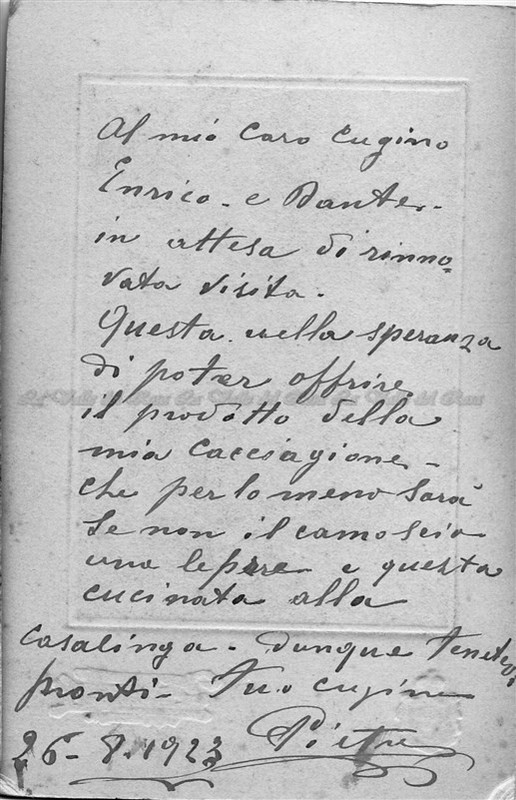 Al mio Caro Cugino
Enrico - e Dante -
in attesa di rinno=
vata visita -
Questa nella speranza
di poter offrire
il prodotto della
mia Cacciagione -
che per lo meno sarà
se non il camoscio
una lepre e questa
cucinata alla
Casalinga - Dunque tenetevi
pronti - Tuo cugino
26 - 8. 1923 Pietro